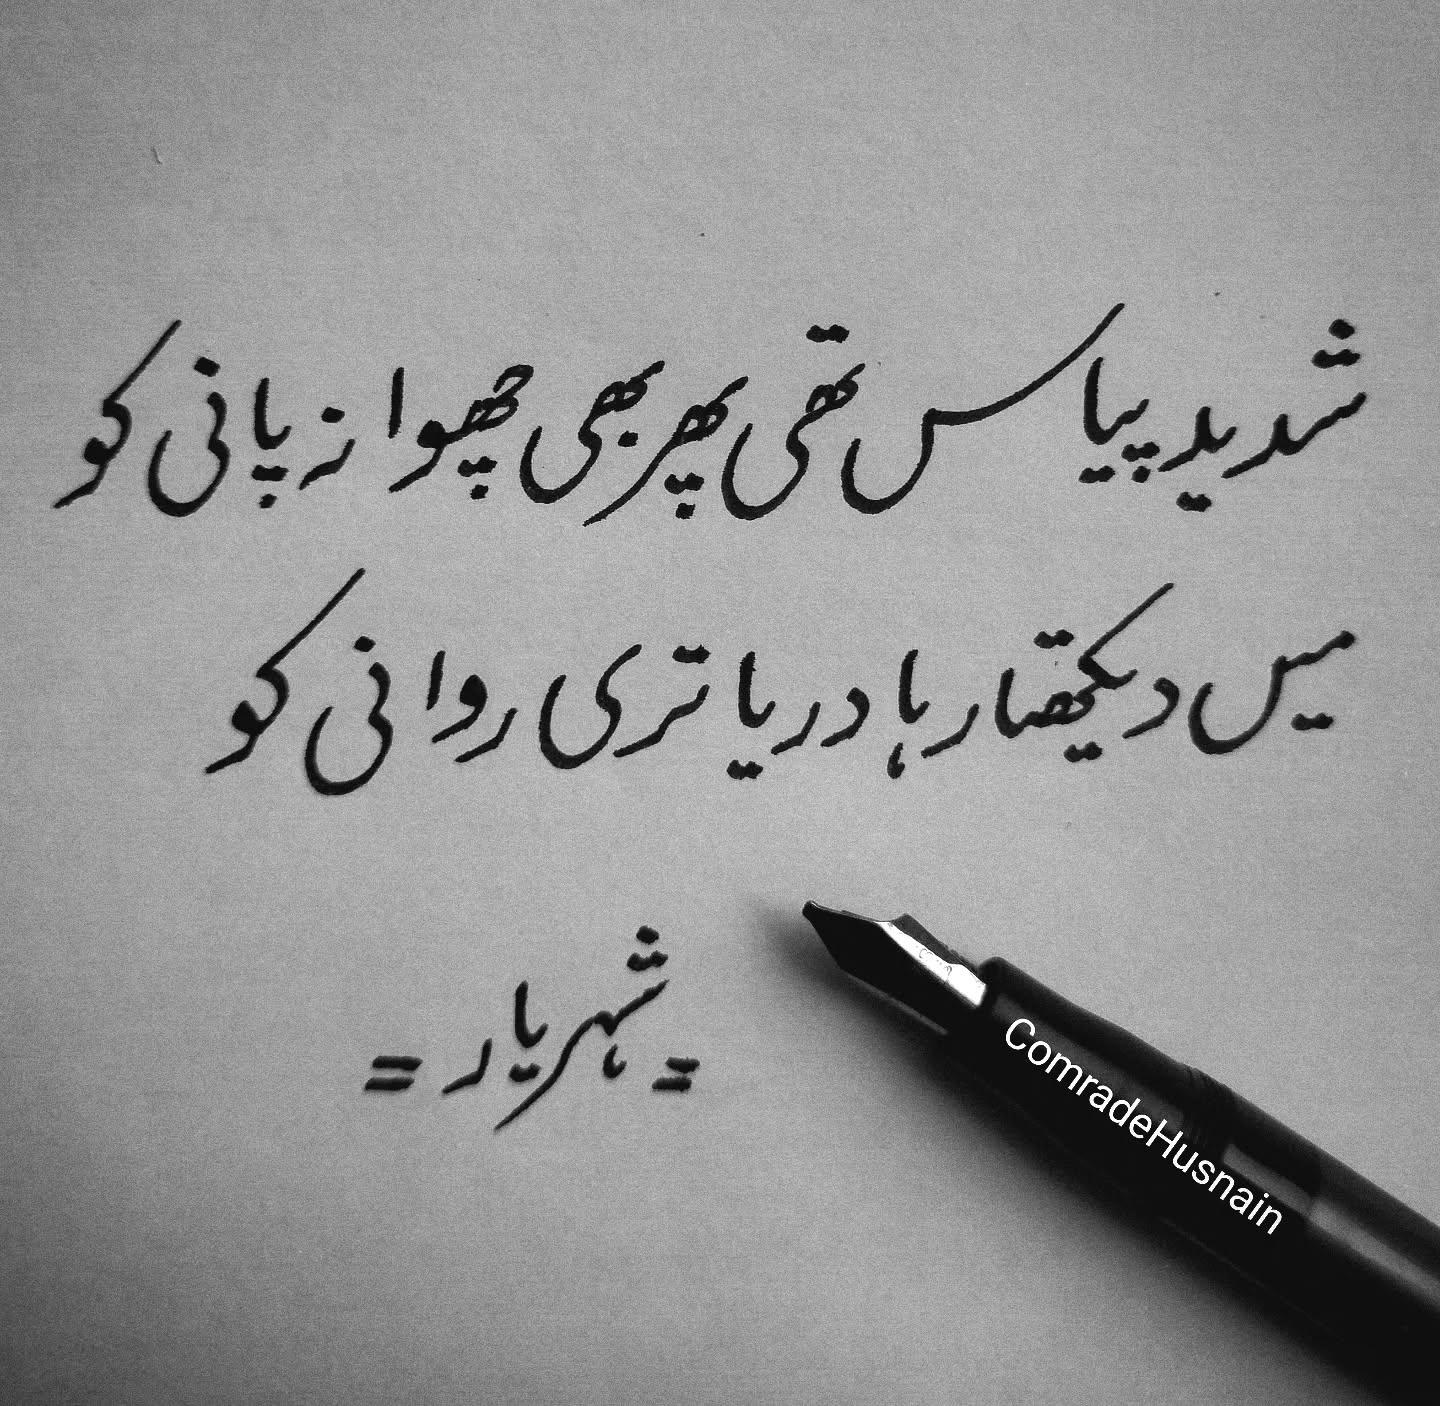 شدید پیاس تھی پھر بھی چھوا نہ پانی کو
میں دیکھتا رہا دریا تری روانی کو
= شہریار =
ComradeHusnain